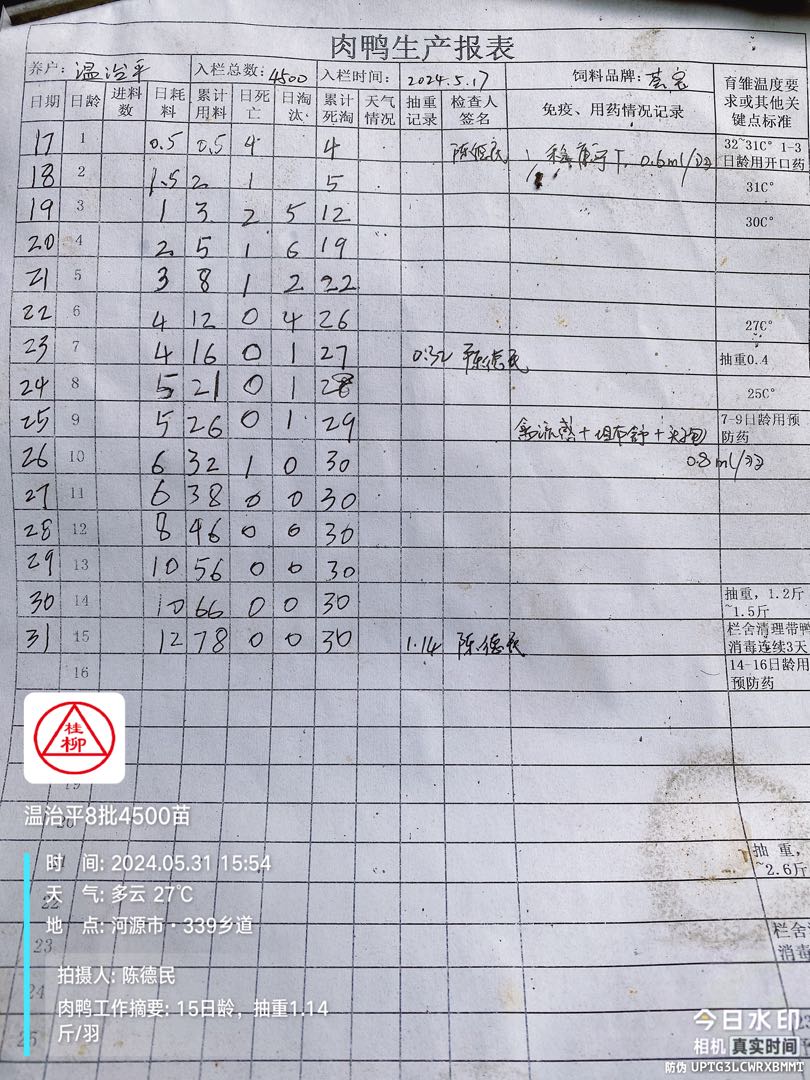 肉鸭生产报表
养户: 温治平 入栏总数: 4500 入栏时间: 2024.5.17 饲料品牌:
日期 日龄 进料数 日耗料 累计用料 日死亡 日淘汰 累计死淘 天气情况 抽重记录 检查人签名 免疫、用药情况记录 育雏温度要求或其他关键点标准
17 1 0.5 0.5 4 4 陈德民 0.6ml/羽 32~31C° 1-3日龄用开口药
18 2 1.5 2 1 5 31C°
19 3 1 3 2 5 12 30C°
20 4 2 5 1 6 19
21 5 3 8 1 2 22
22 6 4 12 0 4 26 27C°
23 7 4 16 0 1 27 0.32 陈德民 抽重0.4
24 8 5 21 0 1 28 25C°
25 9 5 26 0 1 29 7-9日龄用预防药
26 10 6 32 1 0 30 0.8ml/羽
27 11 6 38 0 0 30
28 12 8 46 0 0 30
29 13 10 56 0 0 30
30 14 10 66 0 0 30 抽重，1.2斤~1.5斤
31 15 12 78 0 0 30 1.14 陈德民 栏舍清理带鸭消毒连续3天
16 14-16日龄用预防药
桂柳
19
温治平8批4500苗
20
抽重，
~2.6斤
时 间: 2024.05.31 15:54
天 气: 多云 27℃
22
地 点: 河源市·339乡道
23
栏舍清
消毒
拍摄人: 陈德民
24
肉鸭工作摘要: 15日龄，抽重1.14
斤/羽
25
今日水印
相机 真实时间
防伪 UPTG3LCWRXBMMT